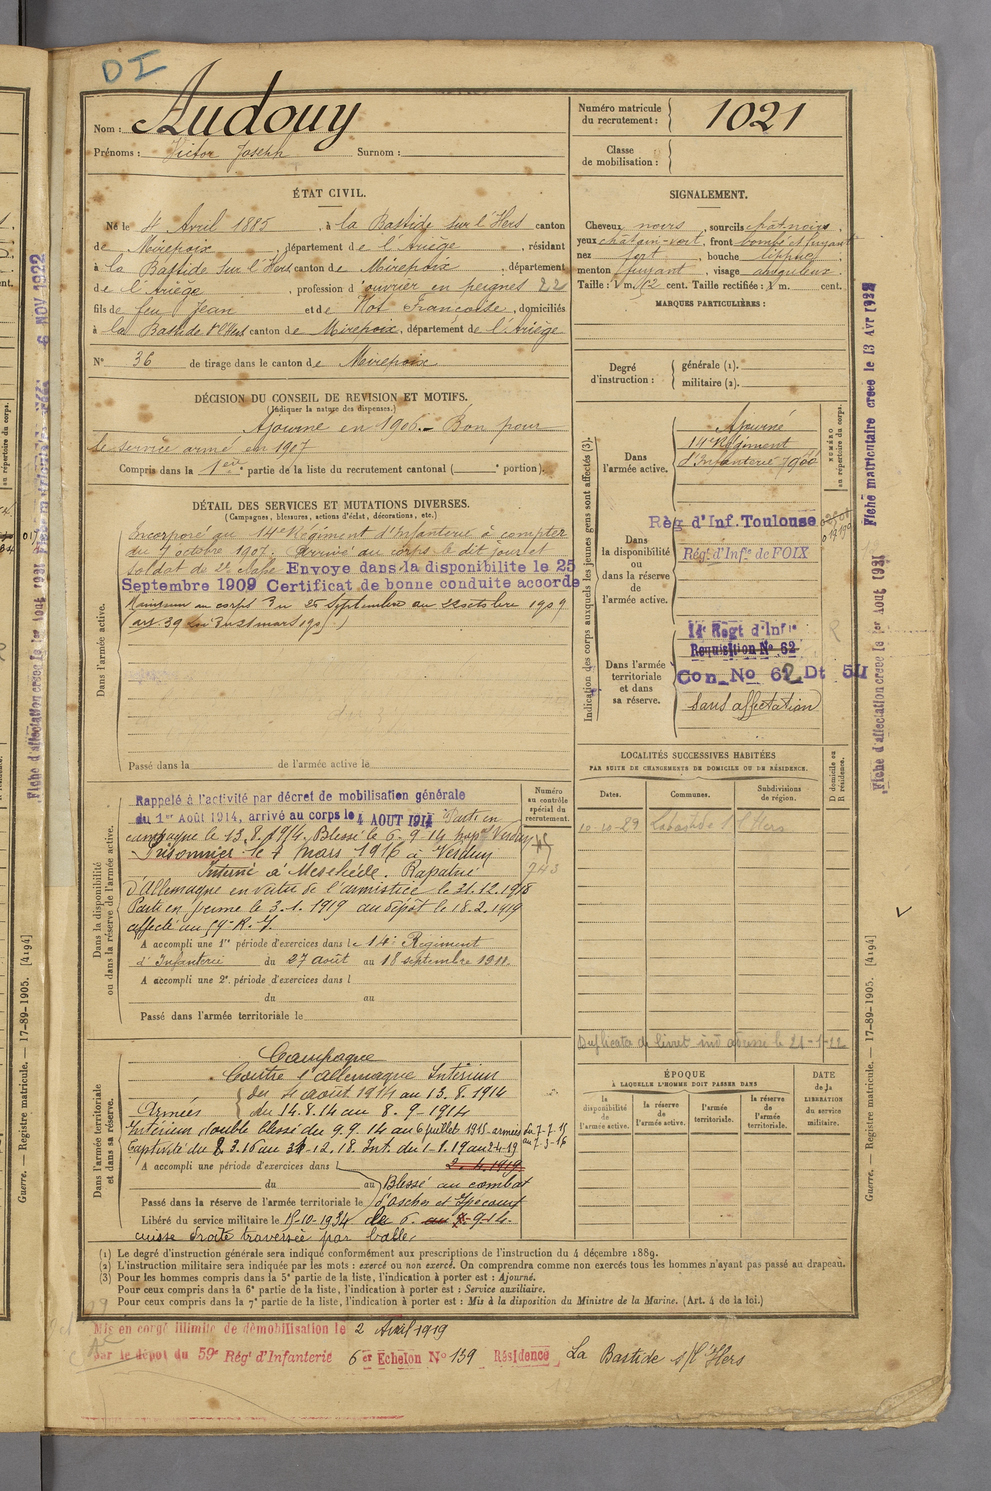 DI
Nom : Audouy
Prénoms : Victor Joseph Surnom :
Numéro matricule du recrutement : 1021
Classe de mobilisation :
ÉTAT CIVIL.
Né le 4 Avril 1885, à la Bastide sur l'Hers canton
de Mirepoix, département de l'Ariège, résidant
à la Bastide sur l'Hers canton de Mirepoix, département
de l'Ariège, profession d'ouvrier en peignes 22
fils de feu Jean et de Hot Françoise, domiciliés
à la Bastide s/l'Hers canton de Mirepoix, département de l'Ariège
N° 36 de tirage dans le canton de Mirepoix
SIGNALEMENT.
Cheveux noirs, sourcils chât. noirs,
yeux châtain-vert, front bombé et fuyant
nez fort, bouche lippue,
menton fuyant, visage anguleux
Taille : 1 m. 62 cent. Taille rectifiée : 1 m. cent.
MARQUES PARTICULIÈRES :
DÉCISION DU CONSEIL DE REVISION ET MOTIFS.
(Indiquer la nature des dispenses.)
Ajourné en 1906. – Bon pour
le service armé en 1907
Compris dans la 1ère partie de la liste du recrutement cantonal ( e portion).
Degré d'instruction :
générale (1).
militaire (2).
DÉTAIL DES SERVICES ET MUTATIONS DIVERSES.
(Campagnes, blessures, actions d'éclat, décorations, etc.)
Dans l'armée active.
Incorporé au 14e Régiment d'Infanterie à compter
du 7 octobre 1907. Arrivé au corps le dit jour et
soldat de 2e classe Envoye dans la disponibilite le 25
Septembre 1909 Certificat de bonne conduite accorde
Maintenu au corps du 25 Septembre au 22 octobre 1909
Passé dans la de l'armée active le
Indication des corps auxquels les jeunes gens sont affectés (3).
NUMÉRO au répertoire du corps.
Dans l'armée active.
Ajourné
14e Régiment
d'Infanterie 7900
Dans la disponibilité ou dans la réserve de l'armée active.
Rég d'Inf. Toulouse
Régt d'Infie de FOIX
Dans l'armée territoriale et dans sa réserve.
14e Regt d'Infie
Requisition No 62
Con_No 62 Dt 5U
sans affectation
Dans la disponibilité ou dans la réserve de l'armée active.
Numéro au contrôle spécial du recrutement.
743
Rappelé à l'activité par décret de mobilisation générale
du 1er Août 1914, arrivé au corps le 4 AOUT 1914 Parti en
campagne le 13.8.1914. Blessé le 6.9.14
Prisonnier le 7 mars 1916 à Verdun
Interné à Meschede. Rapatrié
d'Allemagne en vertu de l'armistice le 31.12.1918
Parti en perme le 3.1.1919 au dépôt le 18.2.1919
affecté au 59e R.I.
A accompli une 1re période d'exercices dans le 14e Régiment
d'Infanterie du 27 août au 18 septembre 1911.
A accompli une 2e période d'exercices dans l
du au
Passé dans l'armée territoriale le
LOCALITÉS SUCCESSIVES HABITÉES
PAR SUITE DE CHANGEMENTS DE DOMICILE OU DE RÉSIDENCE.
Dates. Communes. Subdivisions de région. D domicile ou R résidence.
10-10-29 Labastide s l'Hers
Duplicata de livret ind adressé le 21-1-22
Dans l'armée territoriale et dans sa réserve.
Campagne
Contre l'Allemagne Intérieur
du 4 août 1914 au 13.8.1914
Armées du 14.8.14 au 8.9.1914
Intérieur double blessé du 9.9.14 au 6 juillet 1915 - armées du 7-7-15 au 7-3-16
Captivité du 8.3.16 au 31-12.18. Int. du 1-1.19 au 2-4-19
A accompli une période d'exercices dans l 2.4.1919
du au Blessé au combat
Passé dans la réserve de l'armée territoriale le
Libéré du service militaire le 15-10-1934 le 6. au 8-9-14.
cuisse droite traversée par balle.
ÉPOQUE
À LAQUELLE L'HOMME DOIT PASSER DANS
la disponibilité de l'armée active.
la réserve de l'armée active.
l'armée territoriale.
la réserve de l'armée territoriale.
DATE de la LIBÉRATION du service militaire.
(1) Le degré d'instruction générale sera indiqué conformément aux prescriptions de l'instruction du 4 décembre 1889.
(2) L'instruction militaire sera indiquée par les mots : exercé ou non exercé. On comprendra comme non exercés tous les hommes n'ayant pas passé au drapeau.
(3) Pour les hommes compris dans la 5e partie de la liste, l'indication à porter est : Ajourné.
Pour ceux compris dans la 6e partie de la liste, l'indication à porter est : Service auxiliaire.
Pour ceux compris dans la 7e partie de la liste, l'indication à porter est : Mis à la disposition du Ministre de la Marine. (Art. 4 de la loi.)
Mis en congé illimité de démobilisation le 2 Avril 1919
par le dépot du 59e Régt d'Infanterie 6er Echelon No 139 Résidence La Bastide s/l'Hers
Fiche matriculaire créée le 13 Avr 1922
Fiche d'affectation créée le 1er Aout 1921
Guerre. — Registre matricule. — 17-89-1905. [4194]
6 NOV 1922
Fiche d'affectation créée le 1er Aout 1921
Guerre. — Registre matricule. — 17-89-1905. [4194]